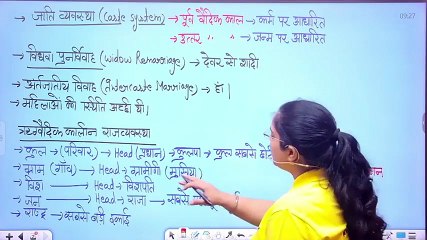 → जाति व्यवस्था (Caste System) → पूर्व वैदिक काल → कर्म पर आधारित
→ उत्तर " " → जन्म पर आधारित
→ विधवा पुनर्विवाह (Widow Remarriage) → देवर से शादी
→ अंतर्जातीय विवाह (Intercaste Marriage) → हाँ।
→ महिलाओं की स्थिति अच्छी थी।
ऋग्वैदिक कालीन राजव्यवस्था
→ कुल → (परिवार) → Head (प्रधान) → कुलपा → कुल सबसे छोटी
→ ग्राम (गाँव) → Head → ग्रामीणी (मुखिया)
→ विश → Head → विशपति
→ जन → Head → राजा → सबसे
→ राष्ट्र → सबसे बड़ी इकाई
09:27